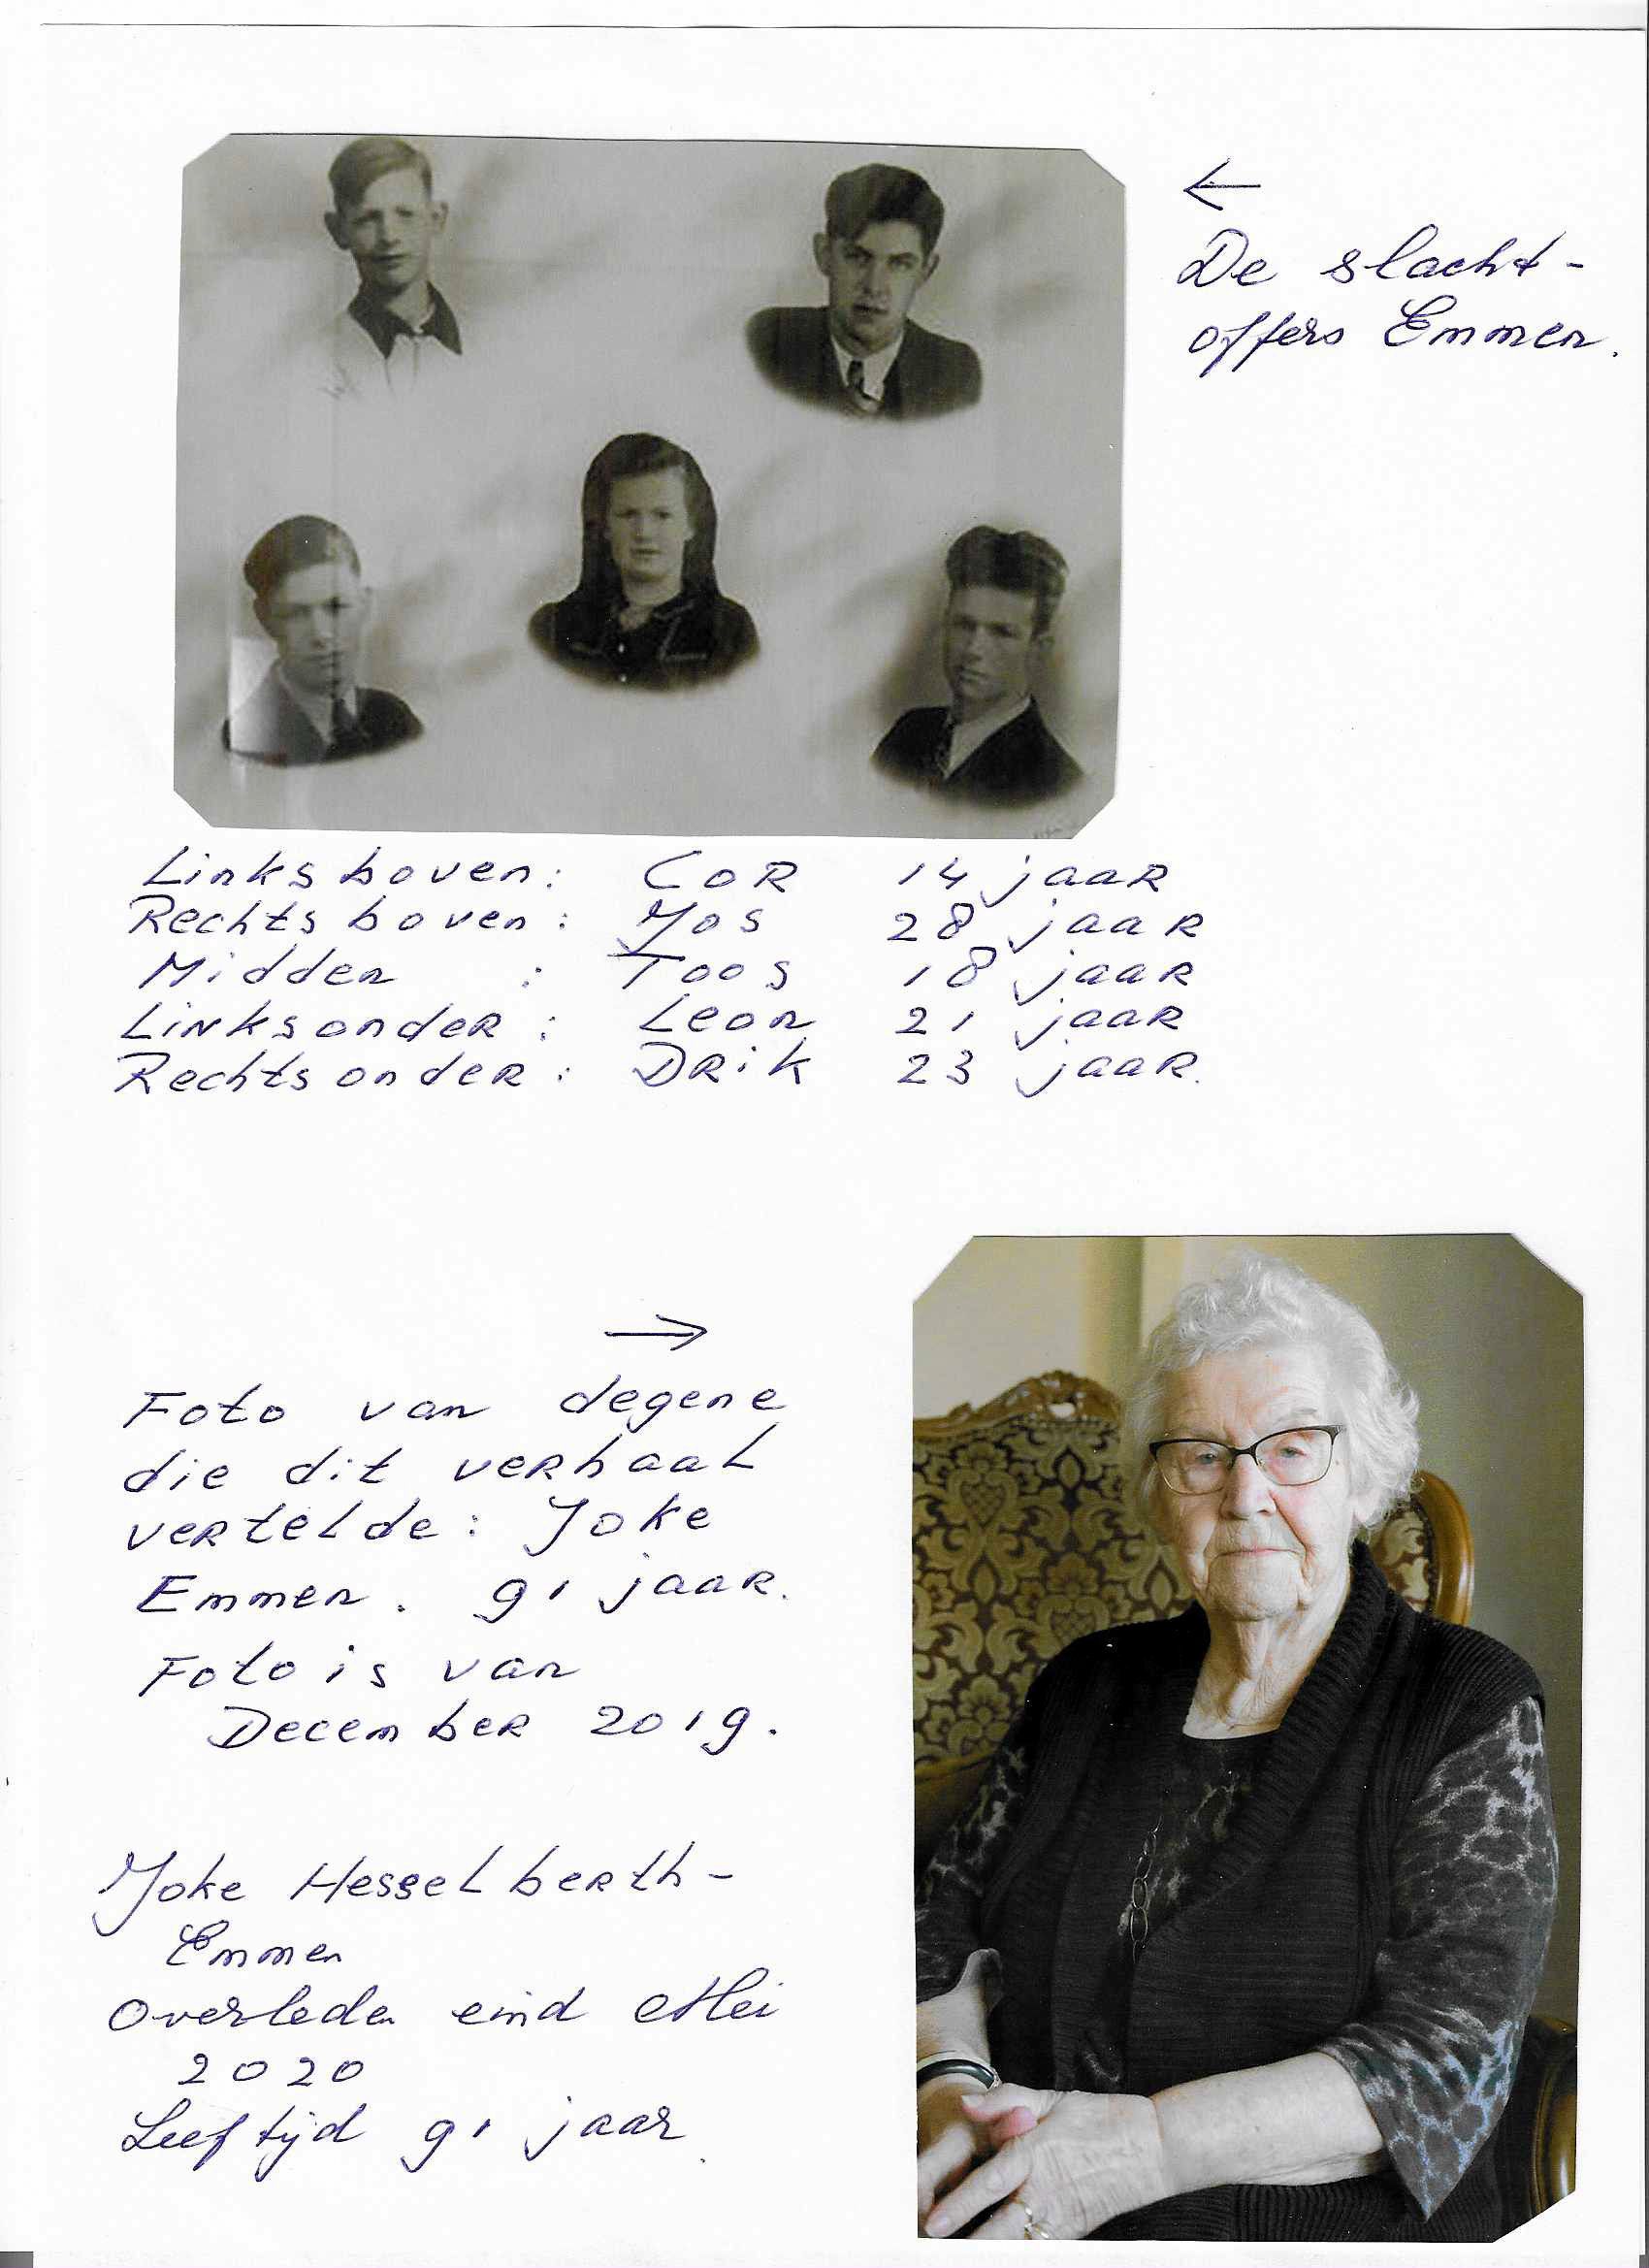 ←
De slacht-
offers Emmen.
Linksboven: Cor 14 jaar
Rechtsboven: Jos 28 jaar
Midden : Toos 18 jaar
Linksonder: Leon 21 jaar
Rechtsonder: Drik 23 jaar.
→
Foto van degene
die dit verhaal
vertelde: Joke
Emmen. 91 jaar.
Foto is van
December 2019.
Joke Hesselberth-
Emmen
Overleden eind Mei
2020
Leeftijd 91 jaar.